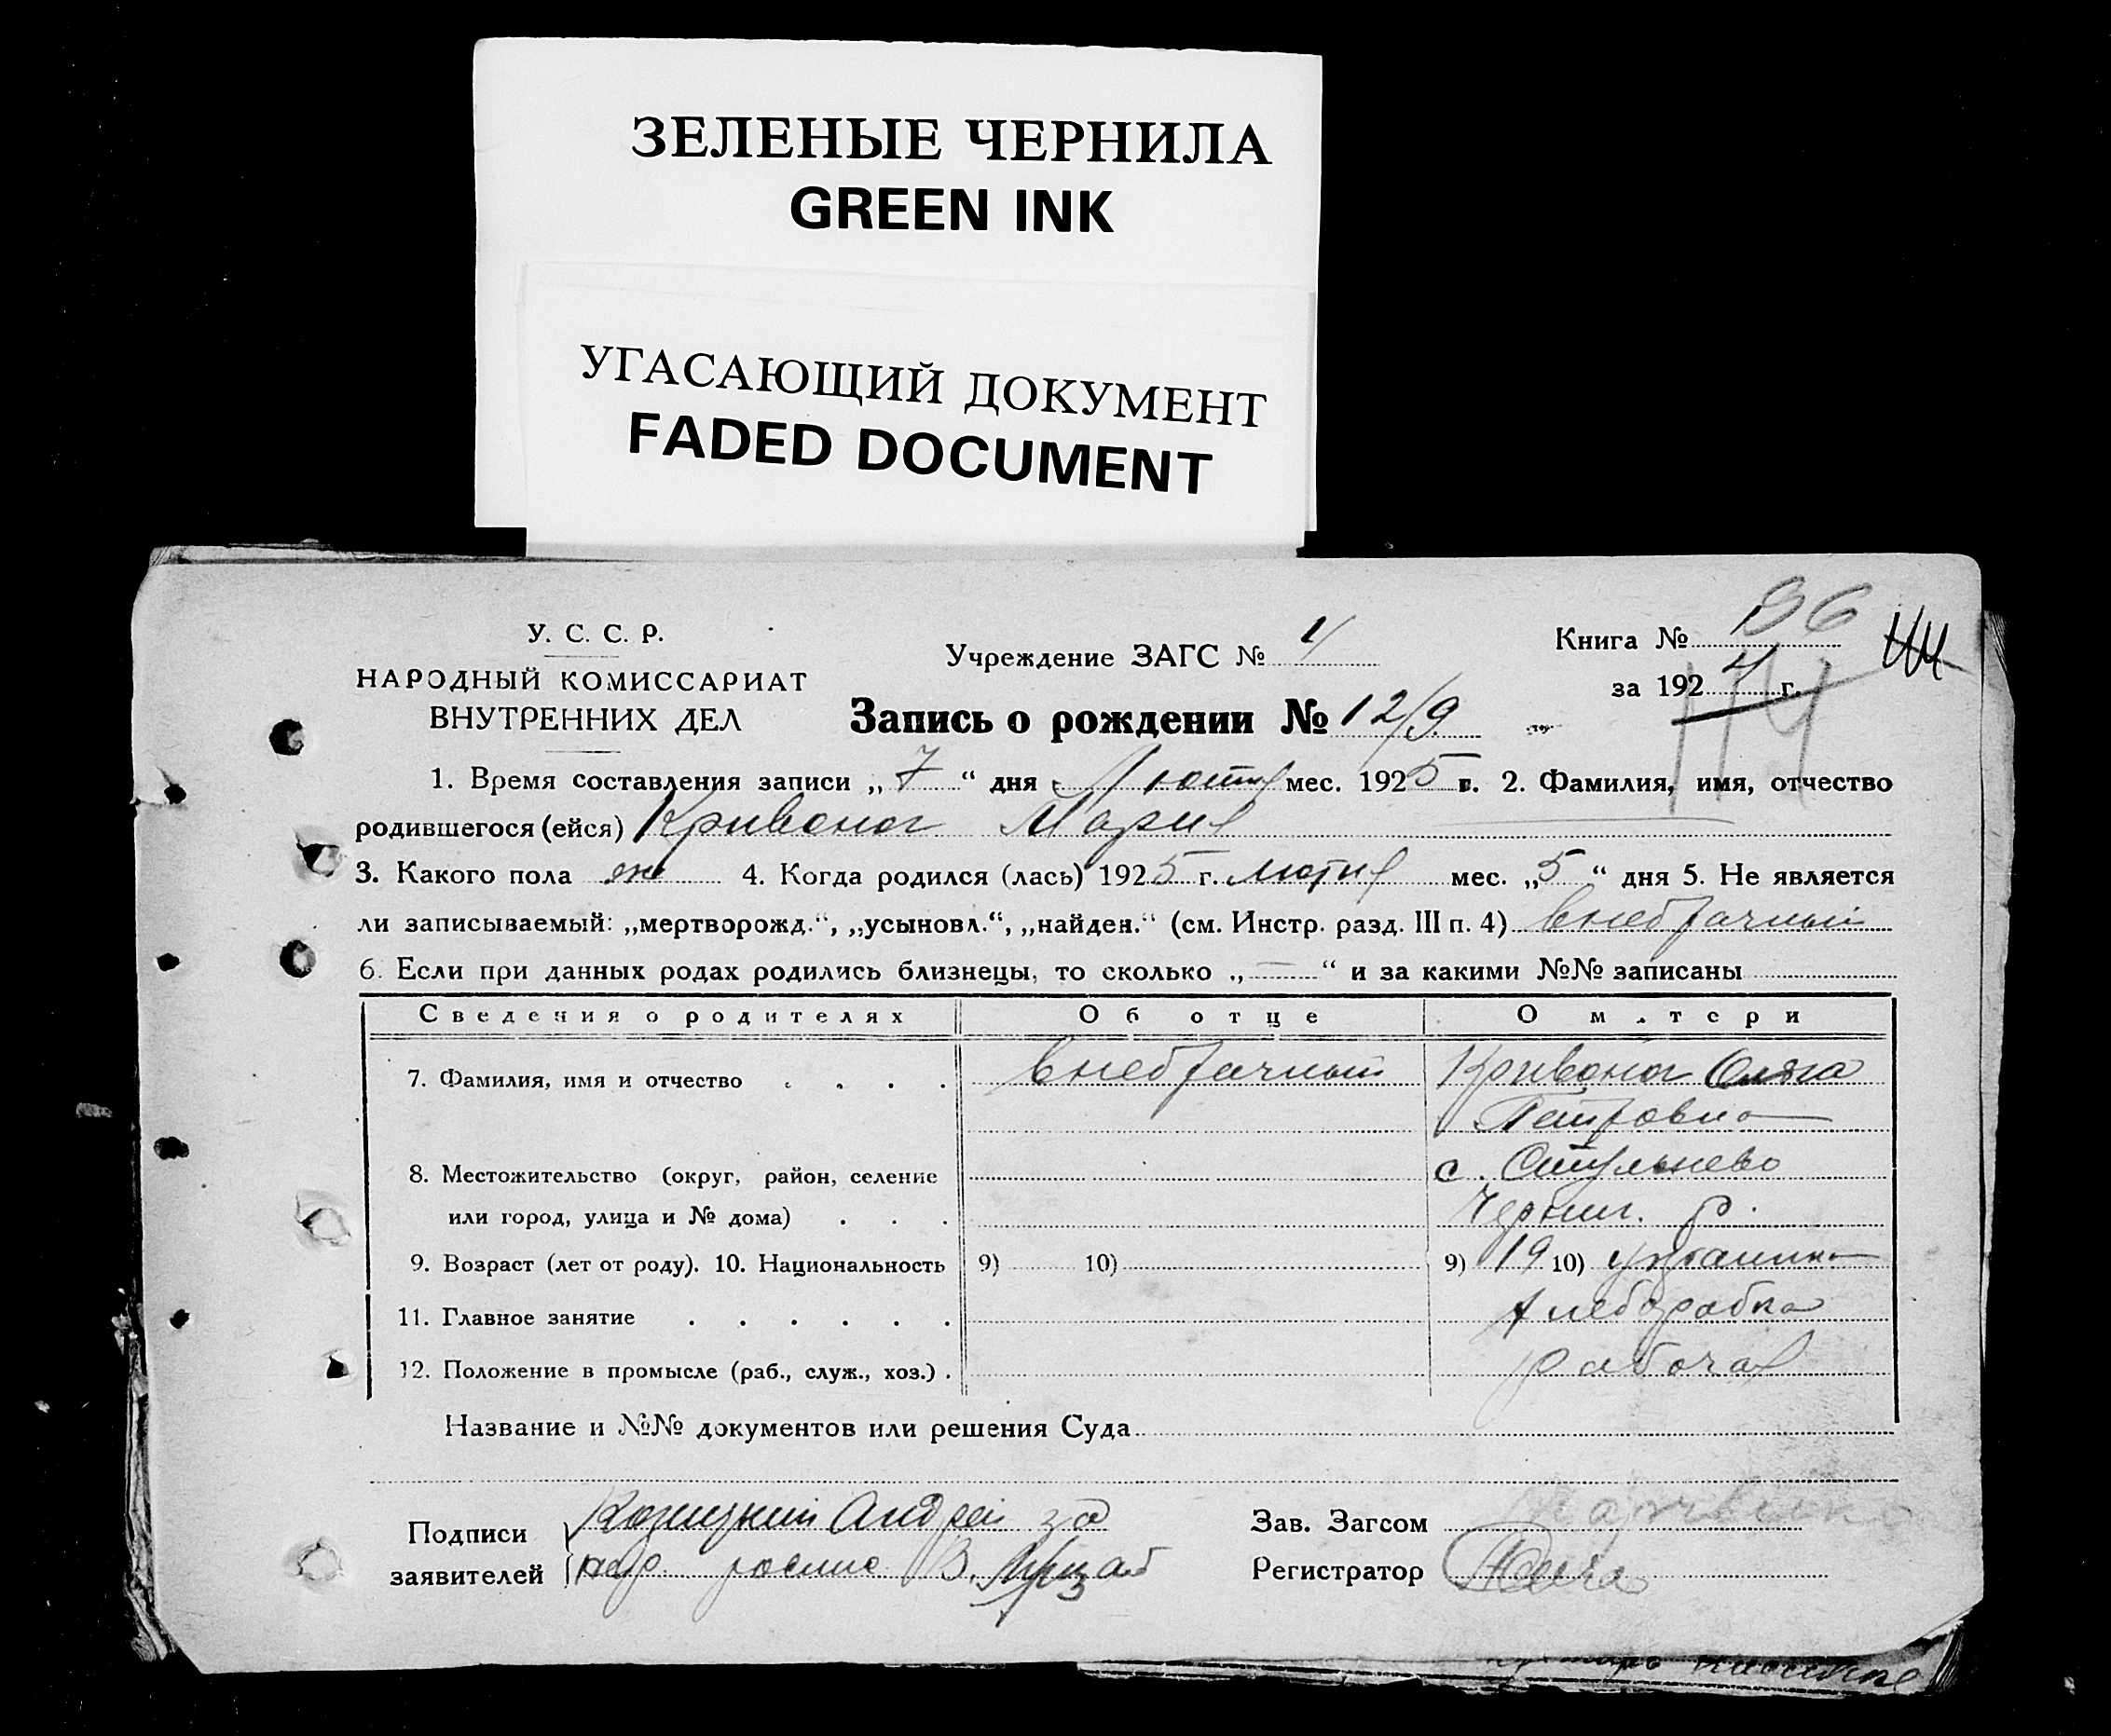 ЗЕЛЕНЫЕ ЧЕРНИЛА
GREEN INK
УГАСАЮЩИЙ ДОКУМЕНТ
FADED DOCUMENT
У. С. С. Р.
НАРОДНЫЙ КОМИССАРИАТ
ВНУТРЕННИХ ДЕЛ
Учреждение ЗАГС № 4
Книга № 36
за 192 4 г.
114
Запись о рождении № 12/9
1. Время составления записи „ 7 “ дня Лютия мес. 192 5 г. 2. Фамилия, имя, отчество
родившегося (ейся) Кривоног Мария
3. Какого пола ж 4. Когда родился (лась) 192 5 г. Лютия мес. „ 5 “ дня 5. Не является
ли записываемый: „мертворожд.“, „усыновл.“, „найден.“ (см. Инстр. разд. III п. 4) внебрачный
6. Если при данных родах родились близнецы, то сколько „ — “ и за какими №№ записаны
Сведения о родителях Об отце О м.тери
7. Фамилия, имя и отчество внебрачный Кривоног Ольга
Петровна
8. Местожительство (округ, район, селение с.
или город, улица и № дома) Черниг. р.
9. Возраст (лет от роду). 10. Национальность 9) 10) 9) 19 10) украинка
11. Главное занятие хлеборобка
12. Положение в промысле (раб., служ., хоз.) рабочая
Название и №№ документов или решения Суда
Подписи Андрей за
заявителей роспис В.
Зав. Загсом
Регистратор